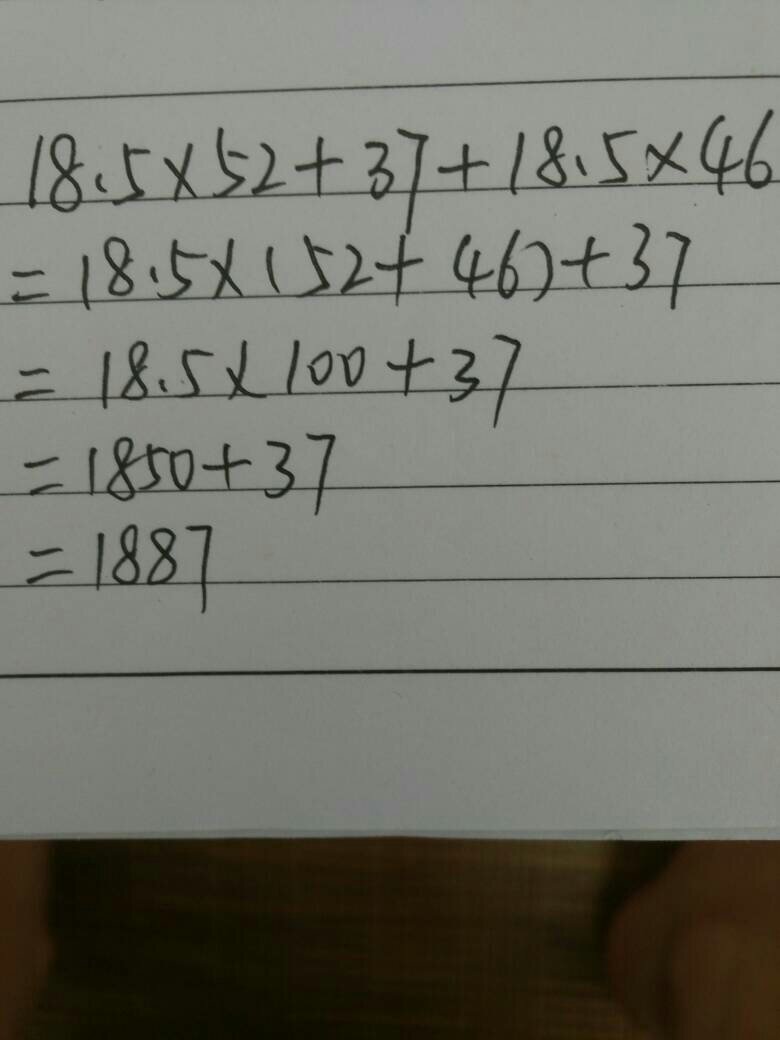 18.5×52+37+18.5×46
=18.5×(52+46)+37
=18.5×100+37
=1850+37
=1887